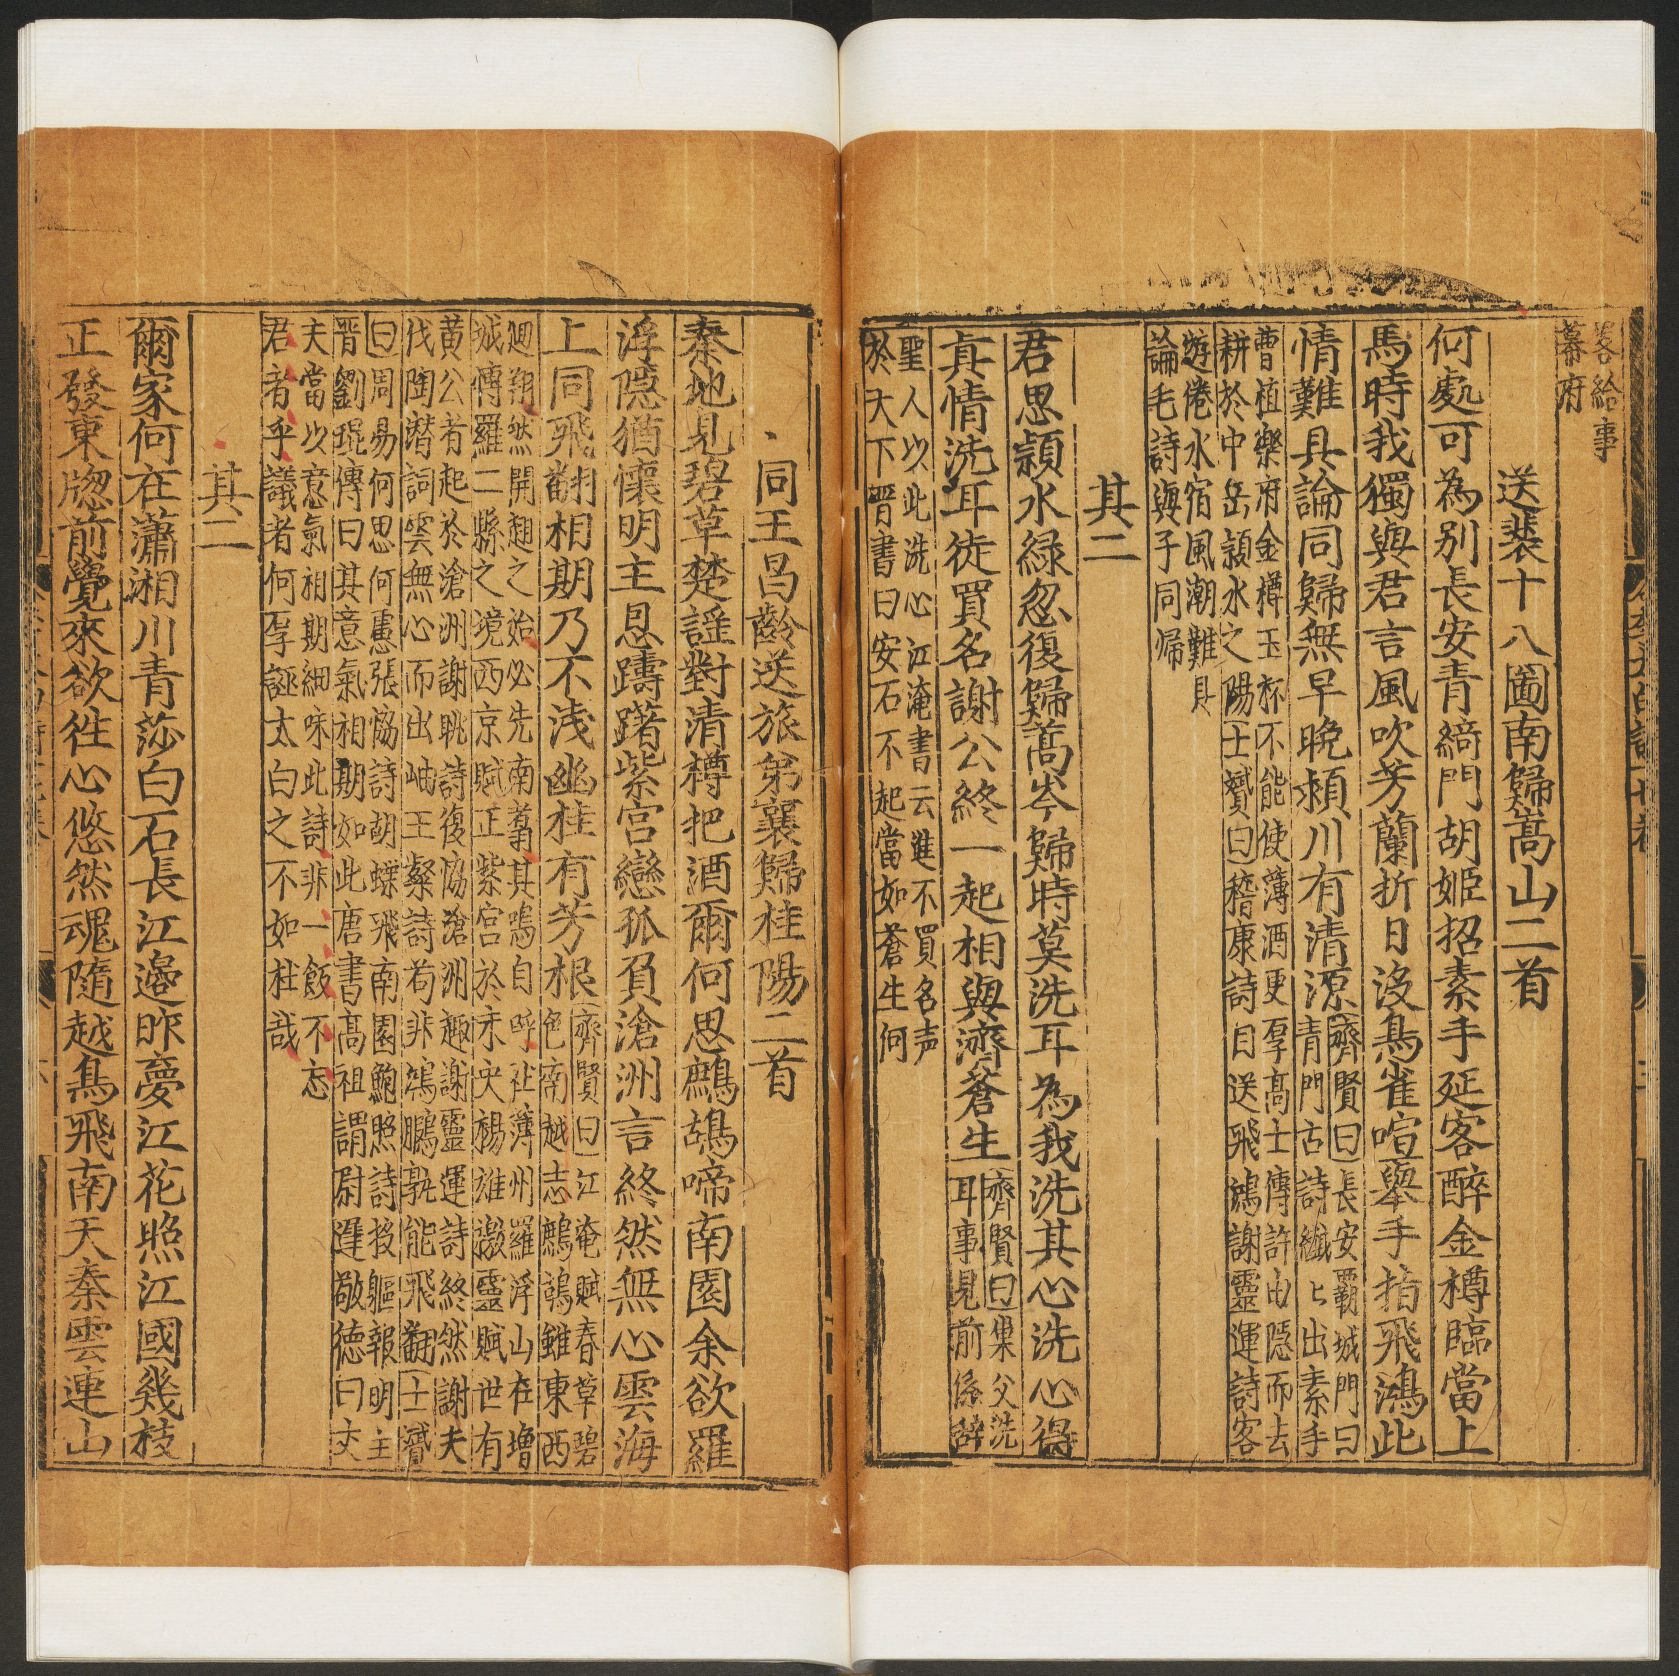 給事
幕府
送裴十八圖南歸嵩山二首
何處可為别長安青綺門胡姬招素手延客醉金樽臨當上
馬時我獨與君言風吹芳蘭折日沒鳥雀喧舉手指飛鴻此
情難具論同歸無早晚潁川有清源
齊賢曰長安霸城門曰
青門古詩纖〻出素手
曹植樂府金樽玉杯不能使薄酒更厚高士傳許由隱而去
耕於中岳潁水之陽士贇曰稽康詩目送飛鴻謝靈運詩客
遊倦水宿風潮難具
論毛詩與子同歸
其二
君思潁水綠忽復歸嵩岑歸時莫洗耳為我洗其心洗心得
真情洗耳徒買名謝公終一起相與濟蒼生
齊賢曰巢父洗
耳事見前係辭
聖人以此洗心江淹書云進不買名声
於天下晉書曰安石不起當如蒼生何
同王昌齡送族弟襄歸桂陽二首
秦地見碧草楚謡對清樽把酒爾何思鷓鴣啼南園余欲羅
浮隱猶懷明主恩躊躇紫宮戀孤負滄洲言終然無心雲海
上同飛翻相期乃不淺幽桂有芳根
齊賢曰江淹賦春草碧
色南越志鷓鴣雖東西
迴翔然開翅之始必先南翥其鳴自呼社薄州羅浮山在增
城傅羅二縣之境西京賦正紫宮於未央楊雄蹳靈賦世有
黃公者起於滄洲謝眺詩復協滄洲趣謝靈運詩終然謝夫
伐陶潛詞雲無心而出岫王粲詩苟非鴻鵰孰能飛翻士贇
曰周易何思何慮張協詩胡蝶飛南園鮑照詩投軀報明主
晋劉琨傳曰其意氣相期如此唐書高祖謂尉遲敬德曰丈
夫當以意氣相期細味此詩非一飯不忘
君者乎議者何厚誣太白之不如杜哉
其二
爾家何在瀟湘川青莎白石長江邊昨夢江花照江國幾枝
正發東牕前覺來欲徃心悠然魂隨越鳥飛南天秦雲連山